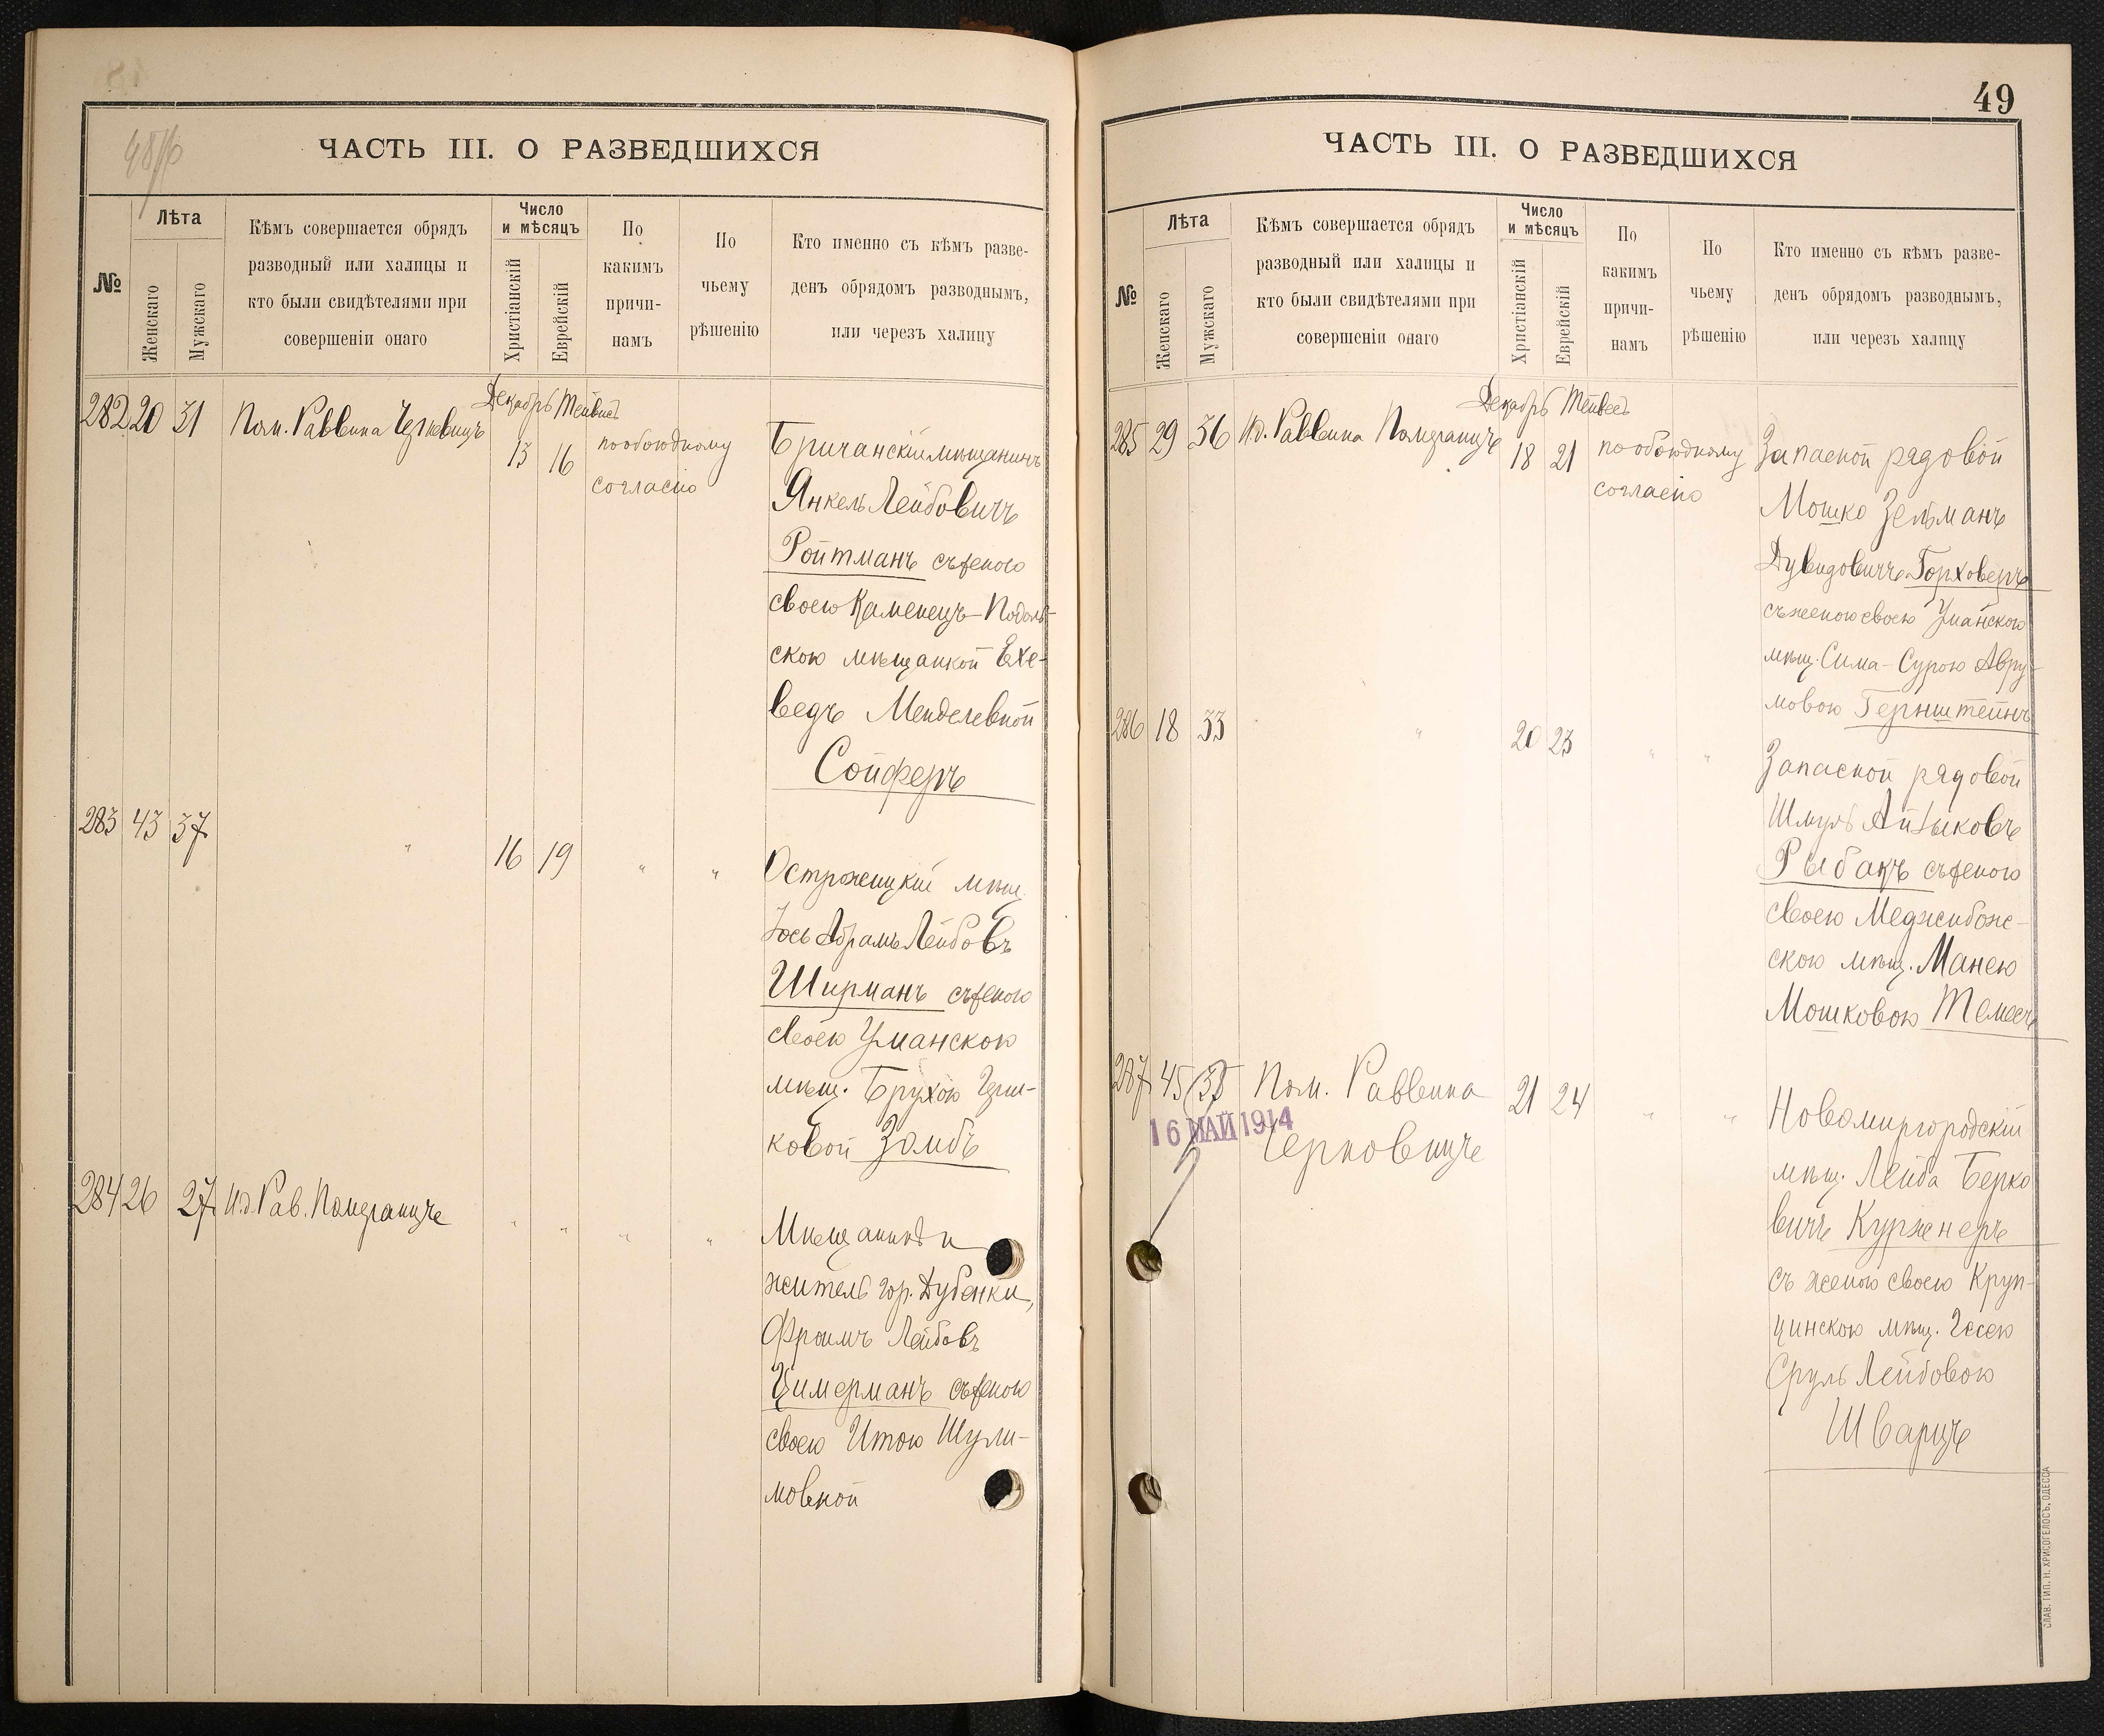 48/об
ЧАСТЬ III. О РАЗВЕДШИХСЯ
№
Лѣта
Женскаго
Мужскаго
Кѣмъ совершается обрядъ
разводный или халицы и
кто были свидѣтелями при
совершеніи онаго
Число
и мѣсяцъ
Христіанскій
Еврейскій
По
какимъ
причи-
намъ
По
чьему
рѣшенію
Кто именно съ кѣмъ разве-
денъ обрядомъ разводнымъ,
или черезъ халицу
282 20 31 Пом. Раввина
Декабрь Тейвесъ
13 16
по обоюдному
согласію
Бричанскій мѣщанинъ
Янкель Лейбовичъ
Ройтманъ съ женою
своею Каменецъ-Подоль-
скою мѣщанкой Ехе-
ведъ Менделевной
Сойферъ
283 43 37 " 16 19 " "
Острожецкій мѣщ.
Іось Абрамъ Лейбовъ
Ширманъ съ женою
своею Уманскою
мѣщ. Брухою Герш-
ковой Замбъ
284 26 27 И.д. Рав. Померанцъ " " " "
Мѣщанинъ и
житель гор. Дубенки,
Фроимъ Лейбовъ
Цимерманъ съ женою
своею Итою Шули-
мовной
49
ЧАСТЬ III. О РАЗВЕДШИХСЯ
№
Лѣта
Женскаго
Мужскаго
Кѣмъ совершается обрядъ
разводный или халицы и
кто были свидѣтелями при
совершеніи онаго
Число
и мѣсяцъ
Христіанскій
Еврейскій
По
какимъ
причи-
намъ
По
чьему
рѣшенію
Кто именно съ кѣмъ разве-
денъ обрядомъ разводнымъ,
или черезъ халицу
285 29 36 И.д. Раввина Померанцъ
Декабрь Тейвесъ
18 21
по обоюдному
согласію
Запасной рядовой
Мошко Зельманъ
Дувидовичъ Горховеръ
съ женою своею Уманскою
мѣщ. Сима-Сурою Авру-
мовою Гернштейнъ
286 18 33 " 20 23 " "
Запасной рядовой
Шмуль Айзыковъ
Рыбакъ съ женою
своею Меджибож-
скою мѣщ. Манею
Мошковою Темесъ
287 45 35 Пом. Раввина
21 24 " "
16 МАЙ 1914
Новомиргородскій
мѣщ. Лейба Берко
вичъ Курженеръ
съ женою своею Круп-
цинскою мѣщ. Гесею
Сруль Лейбовою
Шварцъ
СЛАВ. ТИП. Н. ХРИСОГЕЛОСЪ, ОДЕССА